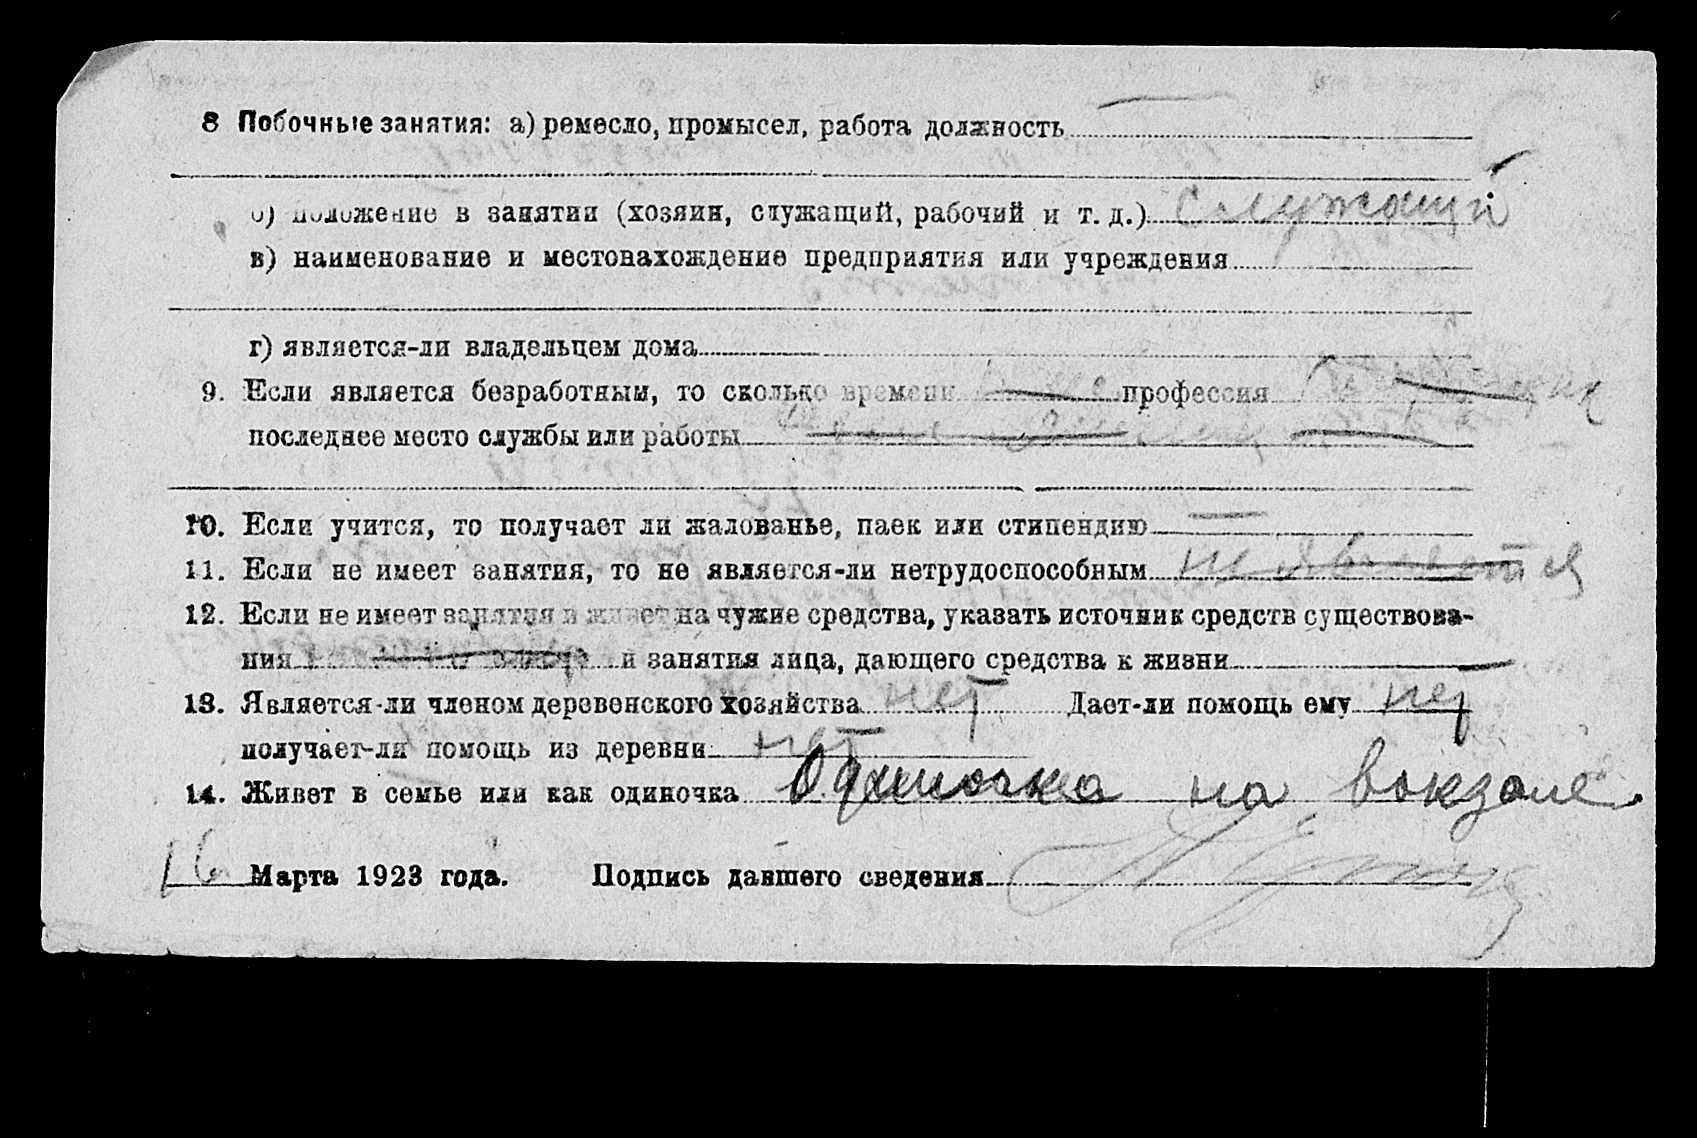 8 Побочные занятия: а) ремесло, промысел, работа должность —
б) положение в занятии (хозяин, служащий, рабочий и т. д.) Служащий
в) наименование и местонахождение предприятия или учреждения
г) является-ли владельцем дома
9. Если является безработным, то сколько времени — профессия
последнее место службы или работы
10. Если учится, то получает ли жалованье, паек или стипендию —
11. Если не имеет занятия, то не является-ли нетрудоспособным не является
12. Если не имеет занятия и живет на чужие средства, указать источник средств существова-
ния и занятия лица, дающего средства к жизни —
13. Является-ли членом деревенского хозяйства нет Дает-ли помощь ему нет
получает-ли помощь из деревни: нет
14. Живет в семье или как одиночка Одиночка на вокзале
16 Марта 1923 года. Подпись давшего сведения